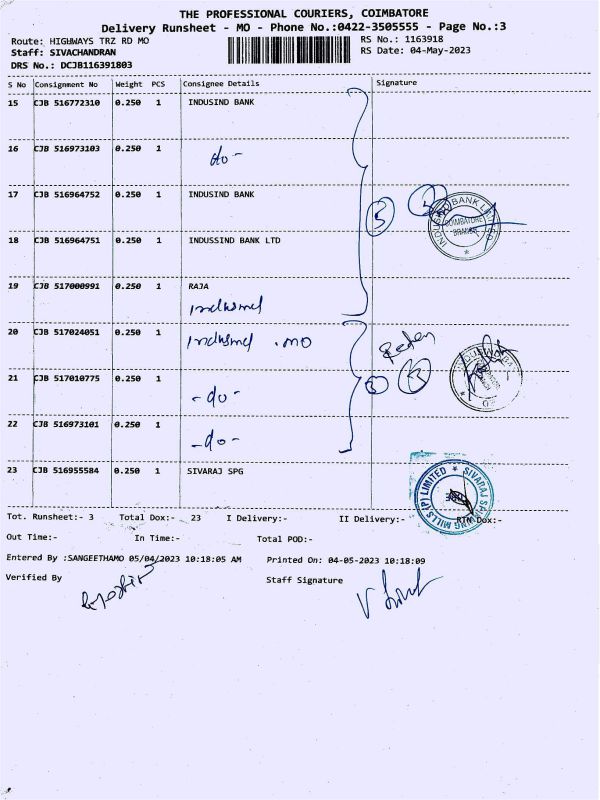 THE PROFESSIONAL COURIERS, COIMBATORE
Delivery Runsheet - MO - Phone No.:0422-3505555 - Page No.:3
Route: HIGHWAYS TRZ RD MO RS No.: 1163918
Staff: SIVACHANDRAN RS Date: 04-May-2023
DRS No.: DCJB116391803
S No Consignment No Weight PCS Consignee Details Signature
15 CJB 516772310 0.250 1 INDUSIND BANK
16 CJB 516973103 0.250 1
do-
17 CJB 516964752 0.250 1 INDUSIND BANK
5 5
INDUSIND BANK LIMITED COIMBATORE BRANCH
18 CJB 516964751 0.250 1 INDUSSIND BANK LTD
19 CJB 517000991 0.250 1 RAJA
Indusind
20 CJB 517024051 0.250 1 Indusind . MO
21 CJB 517010775 0.250 1
-do-
3 3
22 CJB 516973101 0.250 1
-do-
23 CJB 516955584 0.250 1 SIVARAJ SPG
SIVARAJ SPINNING MILLS (P) LIMITED
Tot. Runsheet:- 3 Total Dox:- 23 I Delivery:- II Delivery:- RTN Dox:-
Out Time:- In Time:- Total POD:-
Entered By :SANGEETHAMO 05/04/2023 10:18:05 AM Printed On: 04-05-2023 10:18:09
Verified By Staff Signature